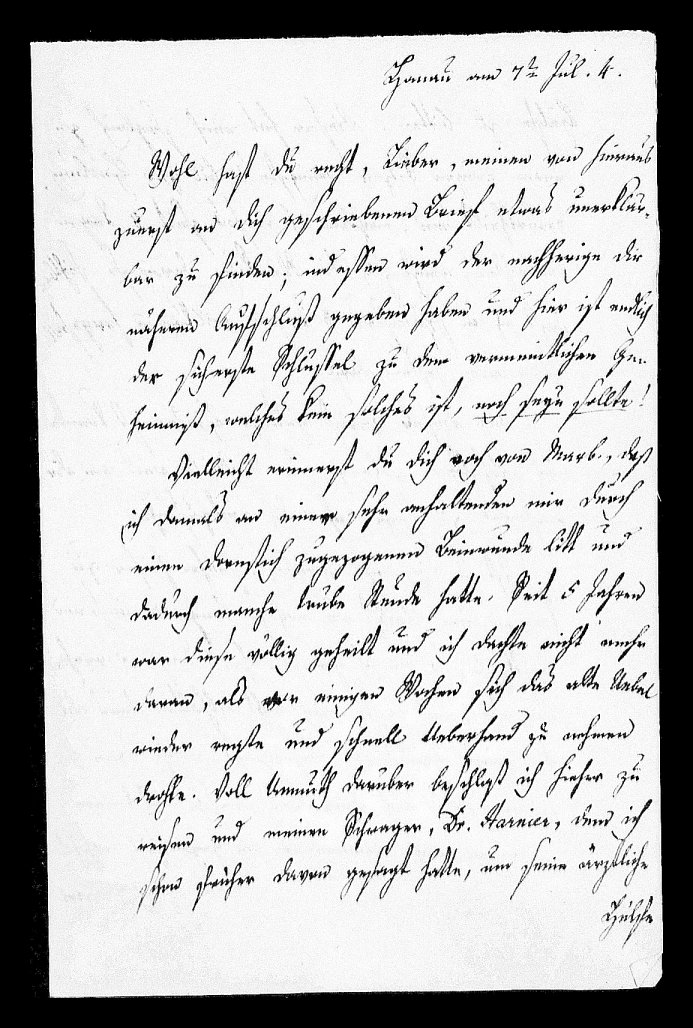 Hanau am 7t Jul. 4.
Wohl hast du recht, Lieber, meinen von hieraus
zuerst an dich geschriebenen Brief etwas unerklär-
bar zu finden; indessen wird der nachherige dir
näheren Aufschluß gegeben haben und hier ist endlich
der sicherste Schlüssel zu dem vermeintlichen Ge-
heimniß, welches kein solches ist, noch seyn sollte!
Vielleicht erinnerst du dich noch von Marb., daß
ich damals an einer sehr anhaltenden mir durch
einen Dornstich zugezogenen Beinwunde litt und
dadurch manche trübe Stunde hatte. Seit 5 Jahren
war diese völlig geheilt und ich dachte nicht mehr
daran, als vor einigen Wochen sich das alte Uebel
wieder regte und schnell Ueberhand zu nehmen
drohte. Voll Unmuth darüber beschloß ich hieher zu
reisen und meinen Schwager, Dr. Harnier, dem ich
schon früher davon gesagt hatte, um seine ärztliche
Hülfe